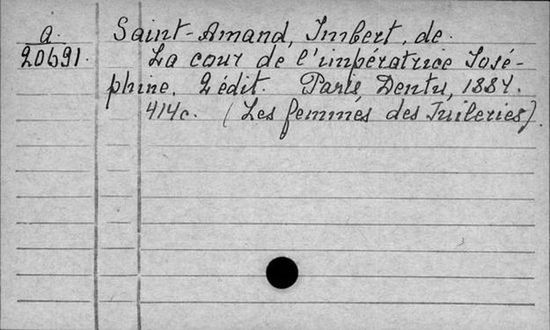 a. Saint-Amand, Imbert, de.
20691. La cour de l'impératrice José-
phine. 2 édit. Paris, Dentu, 1884.
414c. (Les femmes des Tuileries).